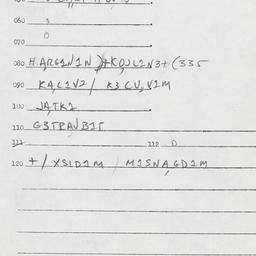 060 s
070 O
080 HARG1N1N)+KOJL1N3+(335
090 KAL1V2/ K3CU,V1M
100 JATK1
110 G3TPAJB1T
111 112 D
120 +/XSID1M/M1SNAGD1M